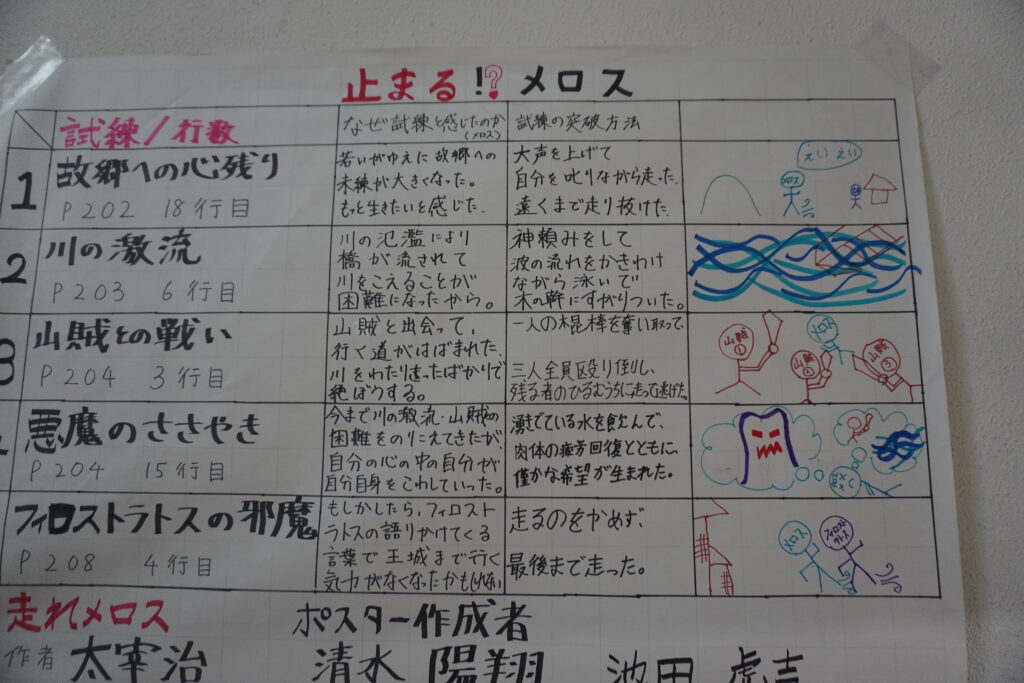 止まる!?メロス
試練/行数
なぜ試練と感じたのか
(メロス)
試練の突破方法
1
故郷への心残り
P202 18行目
若いがゆえに故郷への
未練が大きくなった。
もっと生きたいと感じた.
大声を上げて
自分を叱りながら走った.
遠くまで走り抜けた.
えいえい
メロス
2
川の激流
P203 6行目
川の氾濫により
橋が流されて
川をこえることが
困難になったから。
神頼みをして
波の流れをかきわけ
ながら泳いで
木の幹にすがりついた。
3
山賊との戦い
P204 3行目
山賊と出会って、
行く道がはばまれた.
川をわたり追ったばかりで
絶ぼうする。
一人の棍棒を奪い取って、
三人全員殴り倒し、
残る者のひるむうちに走って逃げた。
山賊
①
メロス
山賊
②
山賊
③
悪魔のささやき
P204 15行目
今まで川の激流・山賊の
困難をのりこえてきたが、
自分の心の中の自分が
自分自身をこわしていった。
湧でている水を飲んで、
肉体の疲労回復とともに、
僅かな希望が生まれた。
フィロストラトスの邪魔
P208 4行目
もしかしたら,フィロスト
ラトスの語りかけてくる
言葉で王城まで行く
気力がなくなたかもしれない
走るのをやめず、
最後まで走った。
メロス
フィロスト
ラトス
走れメロス
作者 太宰治
ポスター作成者
清水 陽翔 池田 虎吉